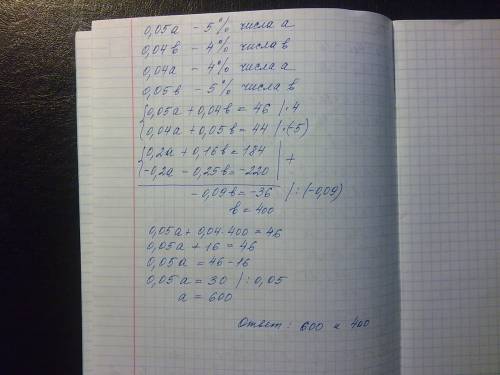 0,05а - 5% числа а
0,04в - 4% числа в
0,04а - 4% числа а
0,05в - 5% числа в
{0,05а + 0,04в = 46 |·4
{0,04а + 0,05в = 44 |·(-5)
{0,2а + 0,16в = 184 | +
{-0,2а - 0,25в = -220
- 0,09в = -36 |:(-0,09)
в = 400
0,05а + 0,04·400 = 46
0,05а + 16 = 46
0,05а = 46-16
0,05а = 30 |:0,05
а = 600
Ответ: 600 и 400